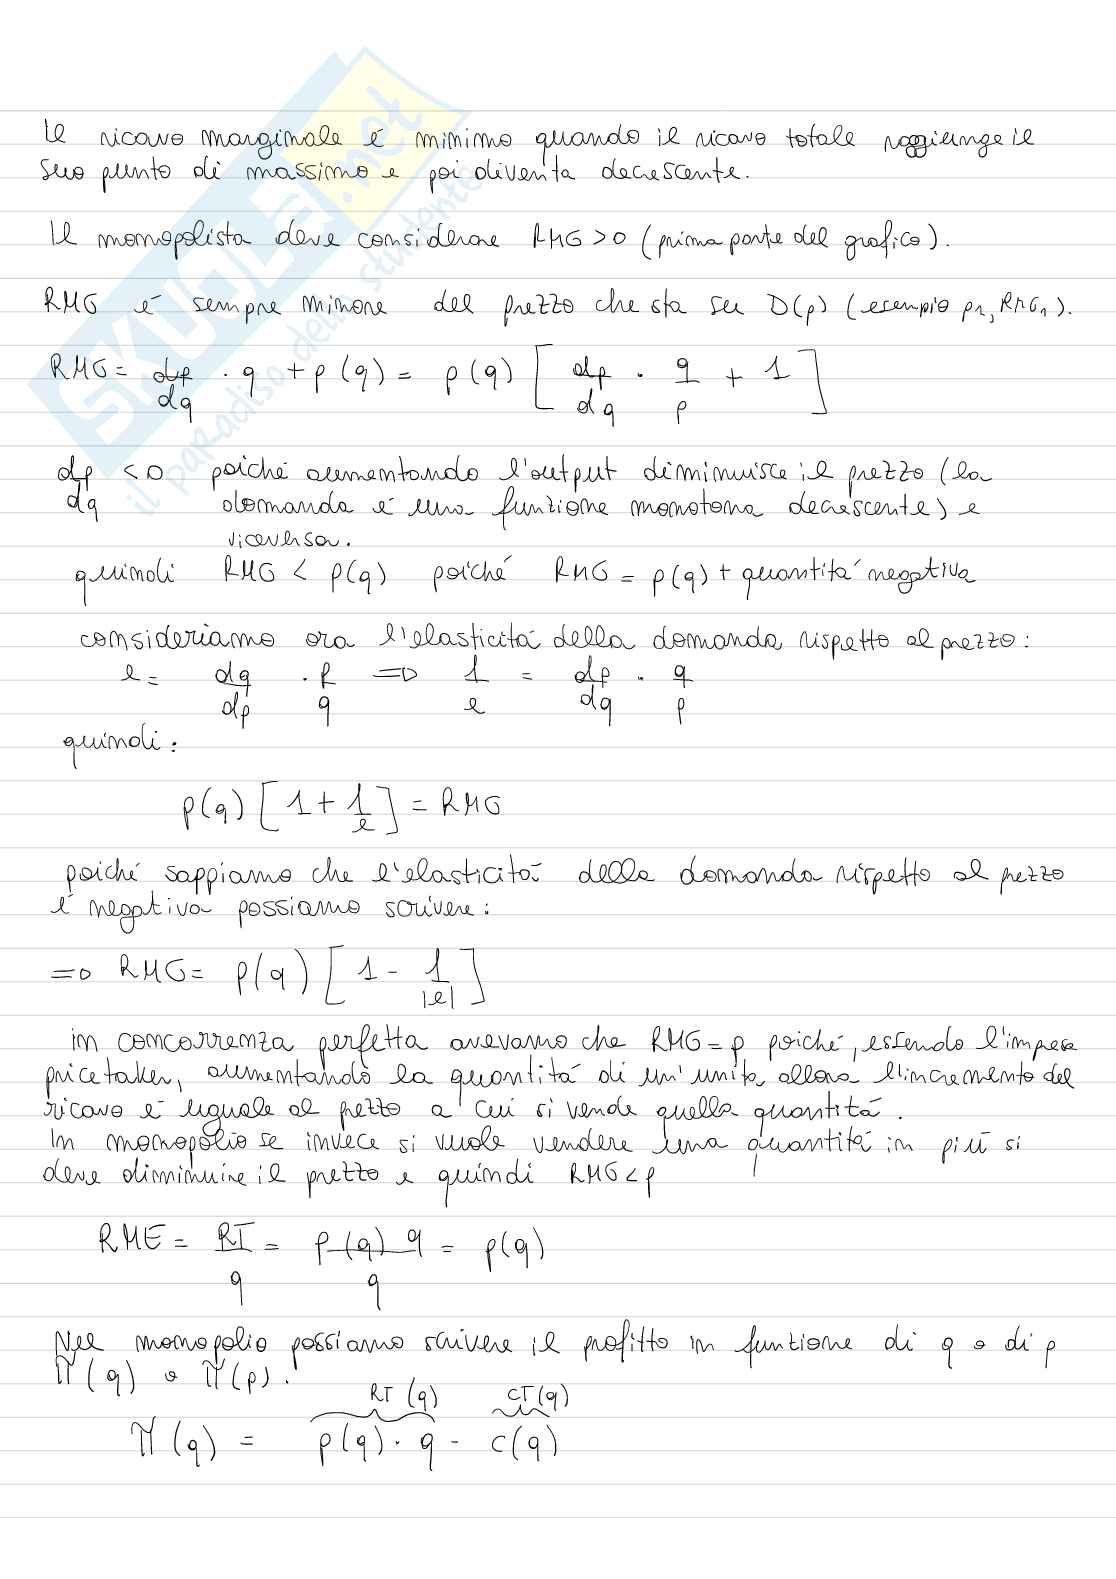 SKUOLA.net
il paradiso dello studente
Il ricavo marginale é minimo quando il ricavo totale raggiunge il
suo punto di massimo e poi diventa decrescente.
Il monopolista deve considerare RMG>0 (prima parte del grafico).
RMG é sempre minore del prezzo che sta su D(p) (esempio p1, RMG1).
RMG = dp/dq · q + p(q) = p(q) [ dp/dq · q/p + 1 ]
dp/dq <0 poiché aumentando l'output diminuisce il prezzo (la
domanda é una funzione monotona decrescente) e
viceversa.
quindi RMG < p(q) poiché RMG = p(q) + quantitá negativa
consideriamo ora l'elasticitá della domanda rispetto al prezzo:
e = dq/dp · p/q => 1/e = dp/dq · q/p
quindi:
p(q) [ 1 + 1/e ] = RMG
poiché sappiamo che l'elasticitá della domanda rispetto al prezzo
é negativa possiamo scrivere:
=> RMG = p(q) [ 1 - 1/|e| ]
in concorrenza perfetta avevamo che RMG = p poiché, essendo l'impresa
price taker, aumentando la quantitá di un'unita allora l'incremento del
ricavo é uguale al prezzo a cui si vende quella quantitá.
In monopolio se invece si vuole vendere una quantitá in piú si
deve diminuire il prezzo e quindi RMG < p
RME = RT/q = p(q) q/q = p(q)
Nel monopolio possiamo scrivere il profitto in funzione di q o di p
π(q) o π(p).
RT(q) CT(q)
π(q) = p(q) · q - c(q)